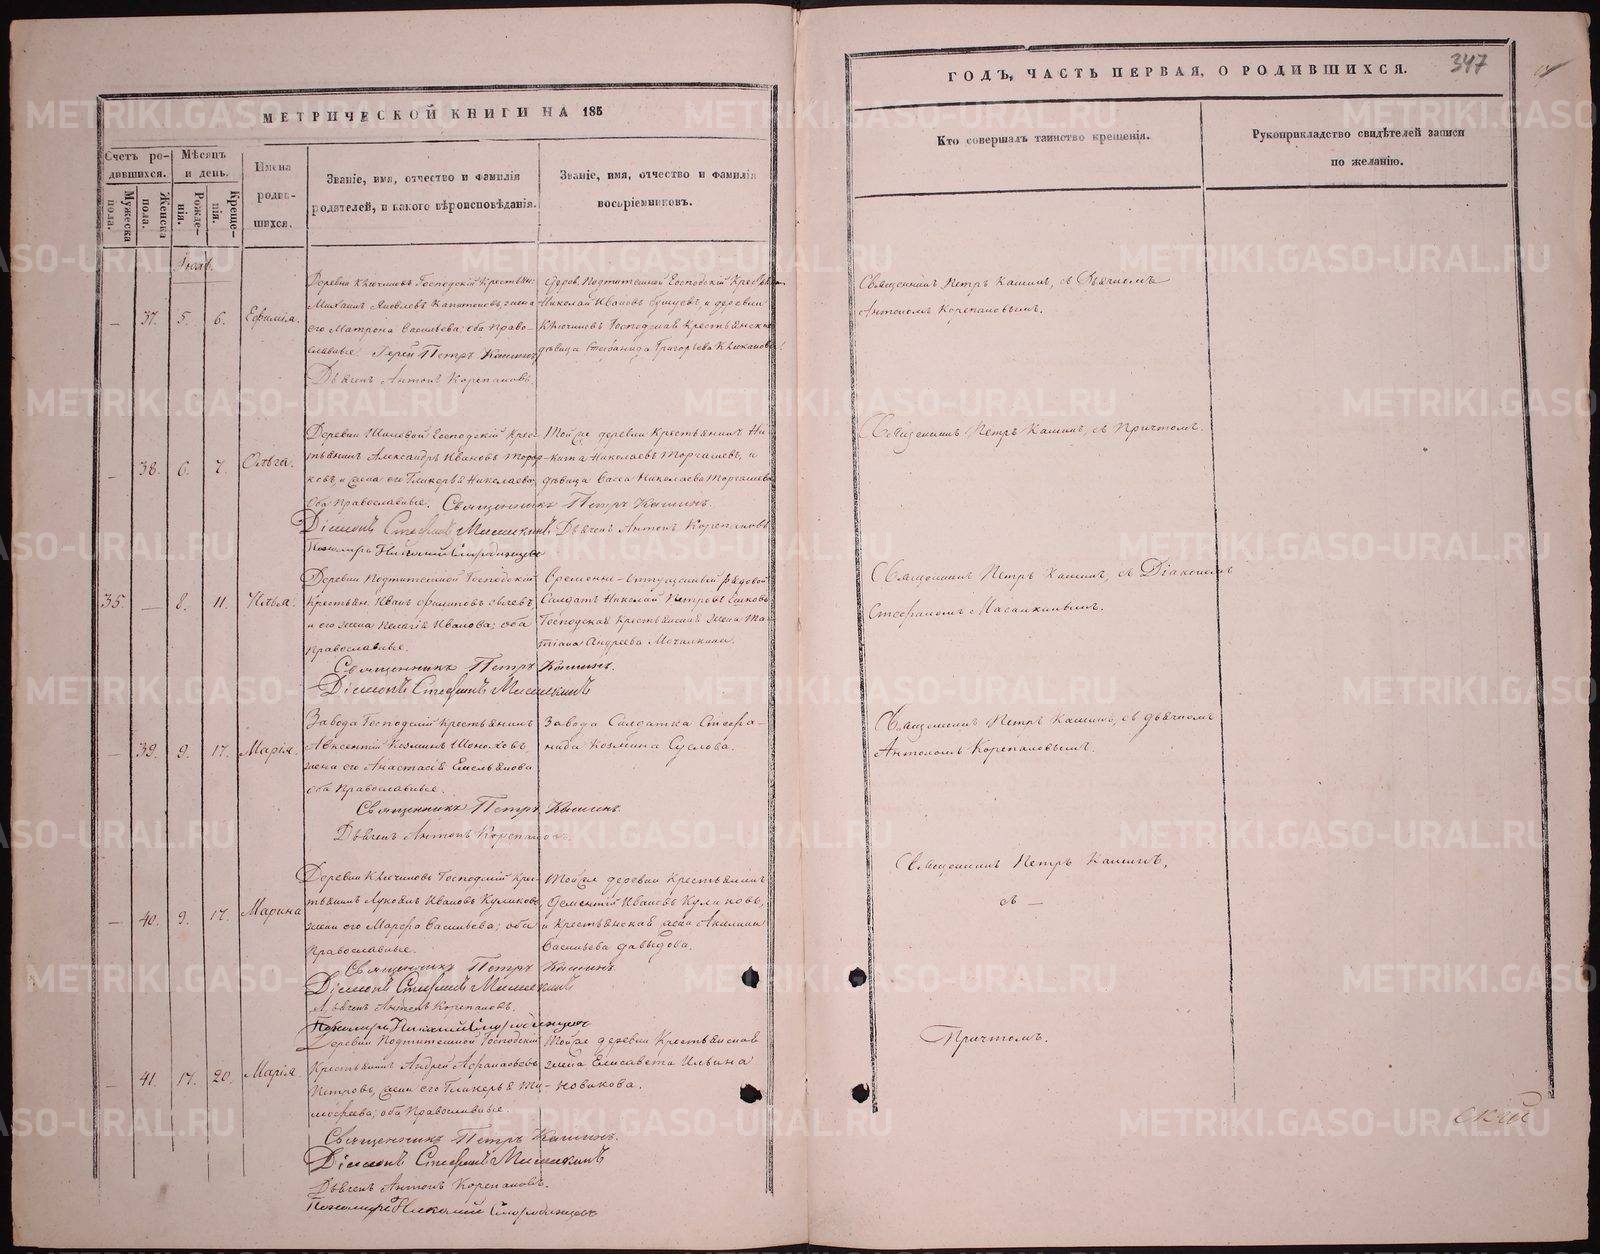 МЕТРИЧЕСКОЙ КНИГИ НА 185
Счетъ ро-
дившихся.
Мужеска
пола.
Женска
пола.
Мѣсяцъ
и день.
Рожде-
нія.
Креще-
нія.
Имена
родив-
шихся.
Званіе, имя, отчество и фамилія
родителей, и какого вѣроисповѣданія.
Званіе, имя, отчество и фамилія
воспріемниковъ.
37. 5. 6.
Деревни Ключиковъ Господскій Крестьян.
Михаилъ Яковлевъ Капитоновъ, жена
его Матрона Васильева; оба Право-
славные. Іерей Петръ Кашинъ
Дьячекъ Антонъ Корепановъ.
Николай Ивановъ и деревни
Ключиковъ Господская Крестьянская
дѣвица Стефанида Григорьева
38. 6. 7. Ольга.
Деревни Шиловой Господскій Крес-
тьянинъ Александръ Ивановъ
и жена его Гликерья Николаева;
Оба Православные. Священникъ Петръ Кашинъ.
Тойже деревни Крестьянинъ Ни-
кита Николаевъ Торгашевъ, и
дѣвица Васса Николаева Торгашева
Діаконъ Стефанъ
Дьячекъ Антонъ Корепановъ
Пономарь Николай Смородинцевъ
35. — 8. 11. Илья.
Деревни Подтитешной Господскій
Крестьян. Иванъ Филиповъ
и его жена Пелагія Иванова; оба
Православные.
Временно-отпускный рядовой
Солдатъ Николай Петровъ
Господская Крестьянская жена Та-
тіана Андреева Мочалкина.
Священникъ Петръ Кашинъ.
Діаконъ Стефанъ
39. 9. 17. Марія.
Завода Господскій Крестьянинъ
Авксентій Козминъ
жена его Анастасія Емельянова
оба Православные.
Завода Солдатка Стефа-
нида Козмина Суслова.
Священникъ Петръ Кашинъ.
Дьячекъ Антонъ Корепановъ.
— 40. 9. 17. Марина
Деревни Ключиковъ Господскій Крес-
тьянинъ Лукоянъ Ивановъ Куликовъ,
жена его Марфа Васильева; оба
Православные.
Тойже деревни Крестьянинъ
Дементій Ивановъ Куликовъ,
и Крестьянская жена Акилина
Васильева Давыдова.
Священникъ Петръ Кашинъ.
Діаконъ Стефанъ
Дьячекъ Антонъ Корепановъ.
Пономарь Николай Смородинцевъ
— 41. 17. 20. Марія.
Деревни Подтитешной Господскій
Крестьянинъ Андрей Афанасьевъ
Петровъ, жена его Гликерья Ти-
мофеева; оба Православные.
Тойже деревни Крестьянская
жена Елисавета Ильина
Новикова.
Священникъ Петръ Кашинъ.
Діаконъ Стефанъ
Дьячекъ Антонъ Корепановъ.
Пономарь Николай Смородинцевъ
ГОДЪ, ЧАСТЬ ПЕРВАЯ, О РОДИВШИХСЯ.
347
Кто совершалъ таинство крещенія.
Рукоприкладство свидѣтелей записи
по желанію.
Священникъ Петръ Кашинъ, съ Дьячкомъ
Антономъ Корепановымъ.
Священникъ Петръ Кашинъ, съ Причтомъ.
Священникъ Петръ Кашинъ, съ Діакономъ
Стефаномъ Масалкинымъ.
Священникъ Петръ Кашинъ, съ дьячкомъ
Антономъ Корепановымъ.
Священникъ Петръ Кашинъ,
съ —
Причтомъ.
METRIKI.GASO-URAL.RU